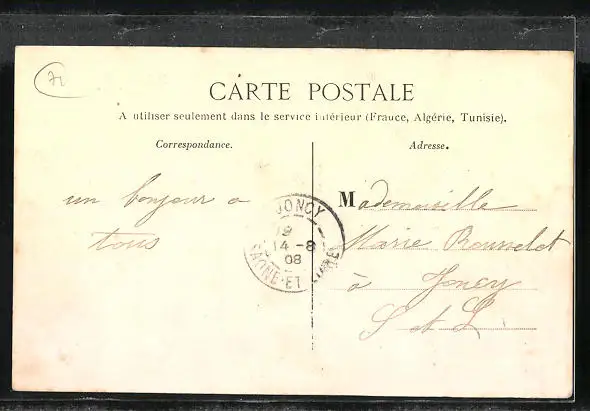 71
CARTE POSTALE
A utiliser seulement dans le service intérieur (France, Algérie, Tunisie).
Correspondance.
Adresse.
un bonjour a
tous
JONCY
14 - 8
08
SAONE-ET-LOIRE
Mademoiselle
Marie
à Joncy
S et L